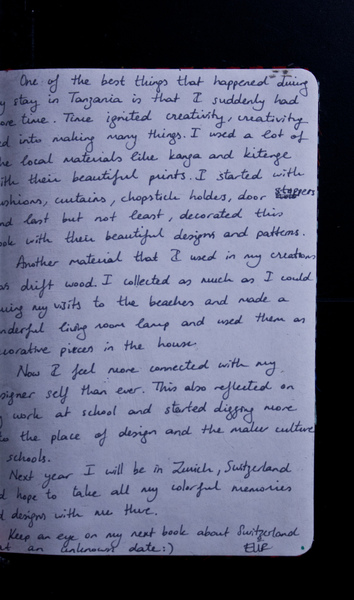 One of the best things that happened during
y stay in Tanzania is that I suddenly had
ore time. Time ignited creativity, creativity
ed into making many things. I used a lot of
he local materials like kanga and kitenge
ith their beautiful prints. I started with
ushions, curtains, chopstick holder, door stoppers
nd last but not least, decorated this
ook with their beautiful designs and patterns.
Another material that I used in my creations
as drift wood. I collected as much as I could
uring my visits to the beaches and made a
nderful living room lamp and used them as
corative pieces in the house.
Now I feel more connected with my
signer self than ever. This also reflected on
y work at school and started digging more
to the place of design and the maker culture
schools.
Next year I will be in Zurich, Switzerland
d hope to take all my colorful memories
d designs with me there.
Keep an eye on my next book about Switzerland
at an unknown date:) Elif